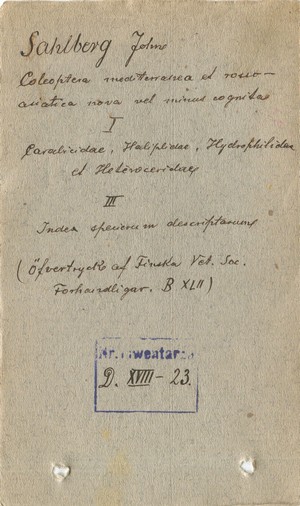 Sahlberg John
Coleoptera mediterranea et rosso-
asiatica nova vel minus cognita
I
Carabicidae, Haliplidae, Hydrophilidae
et Heteroceridae
III
Index specierum descriptarum
(Öfvertryck af Finska Vet. Soc.
Forhandligar. B XLII)
Nr. inwentarz.
D. XVIII - 23.